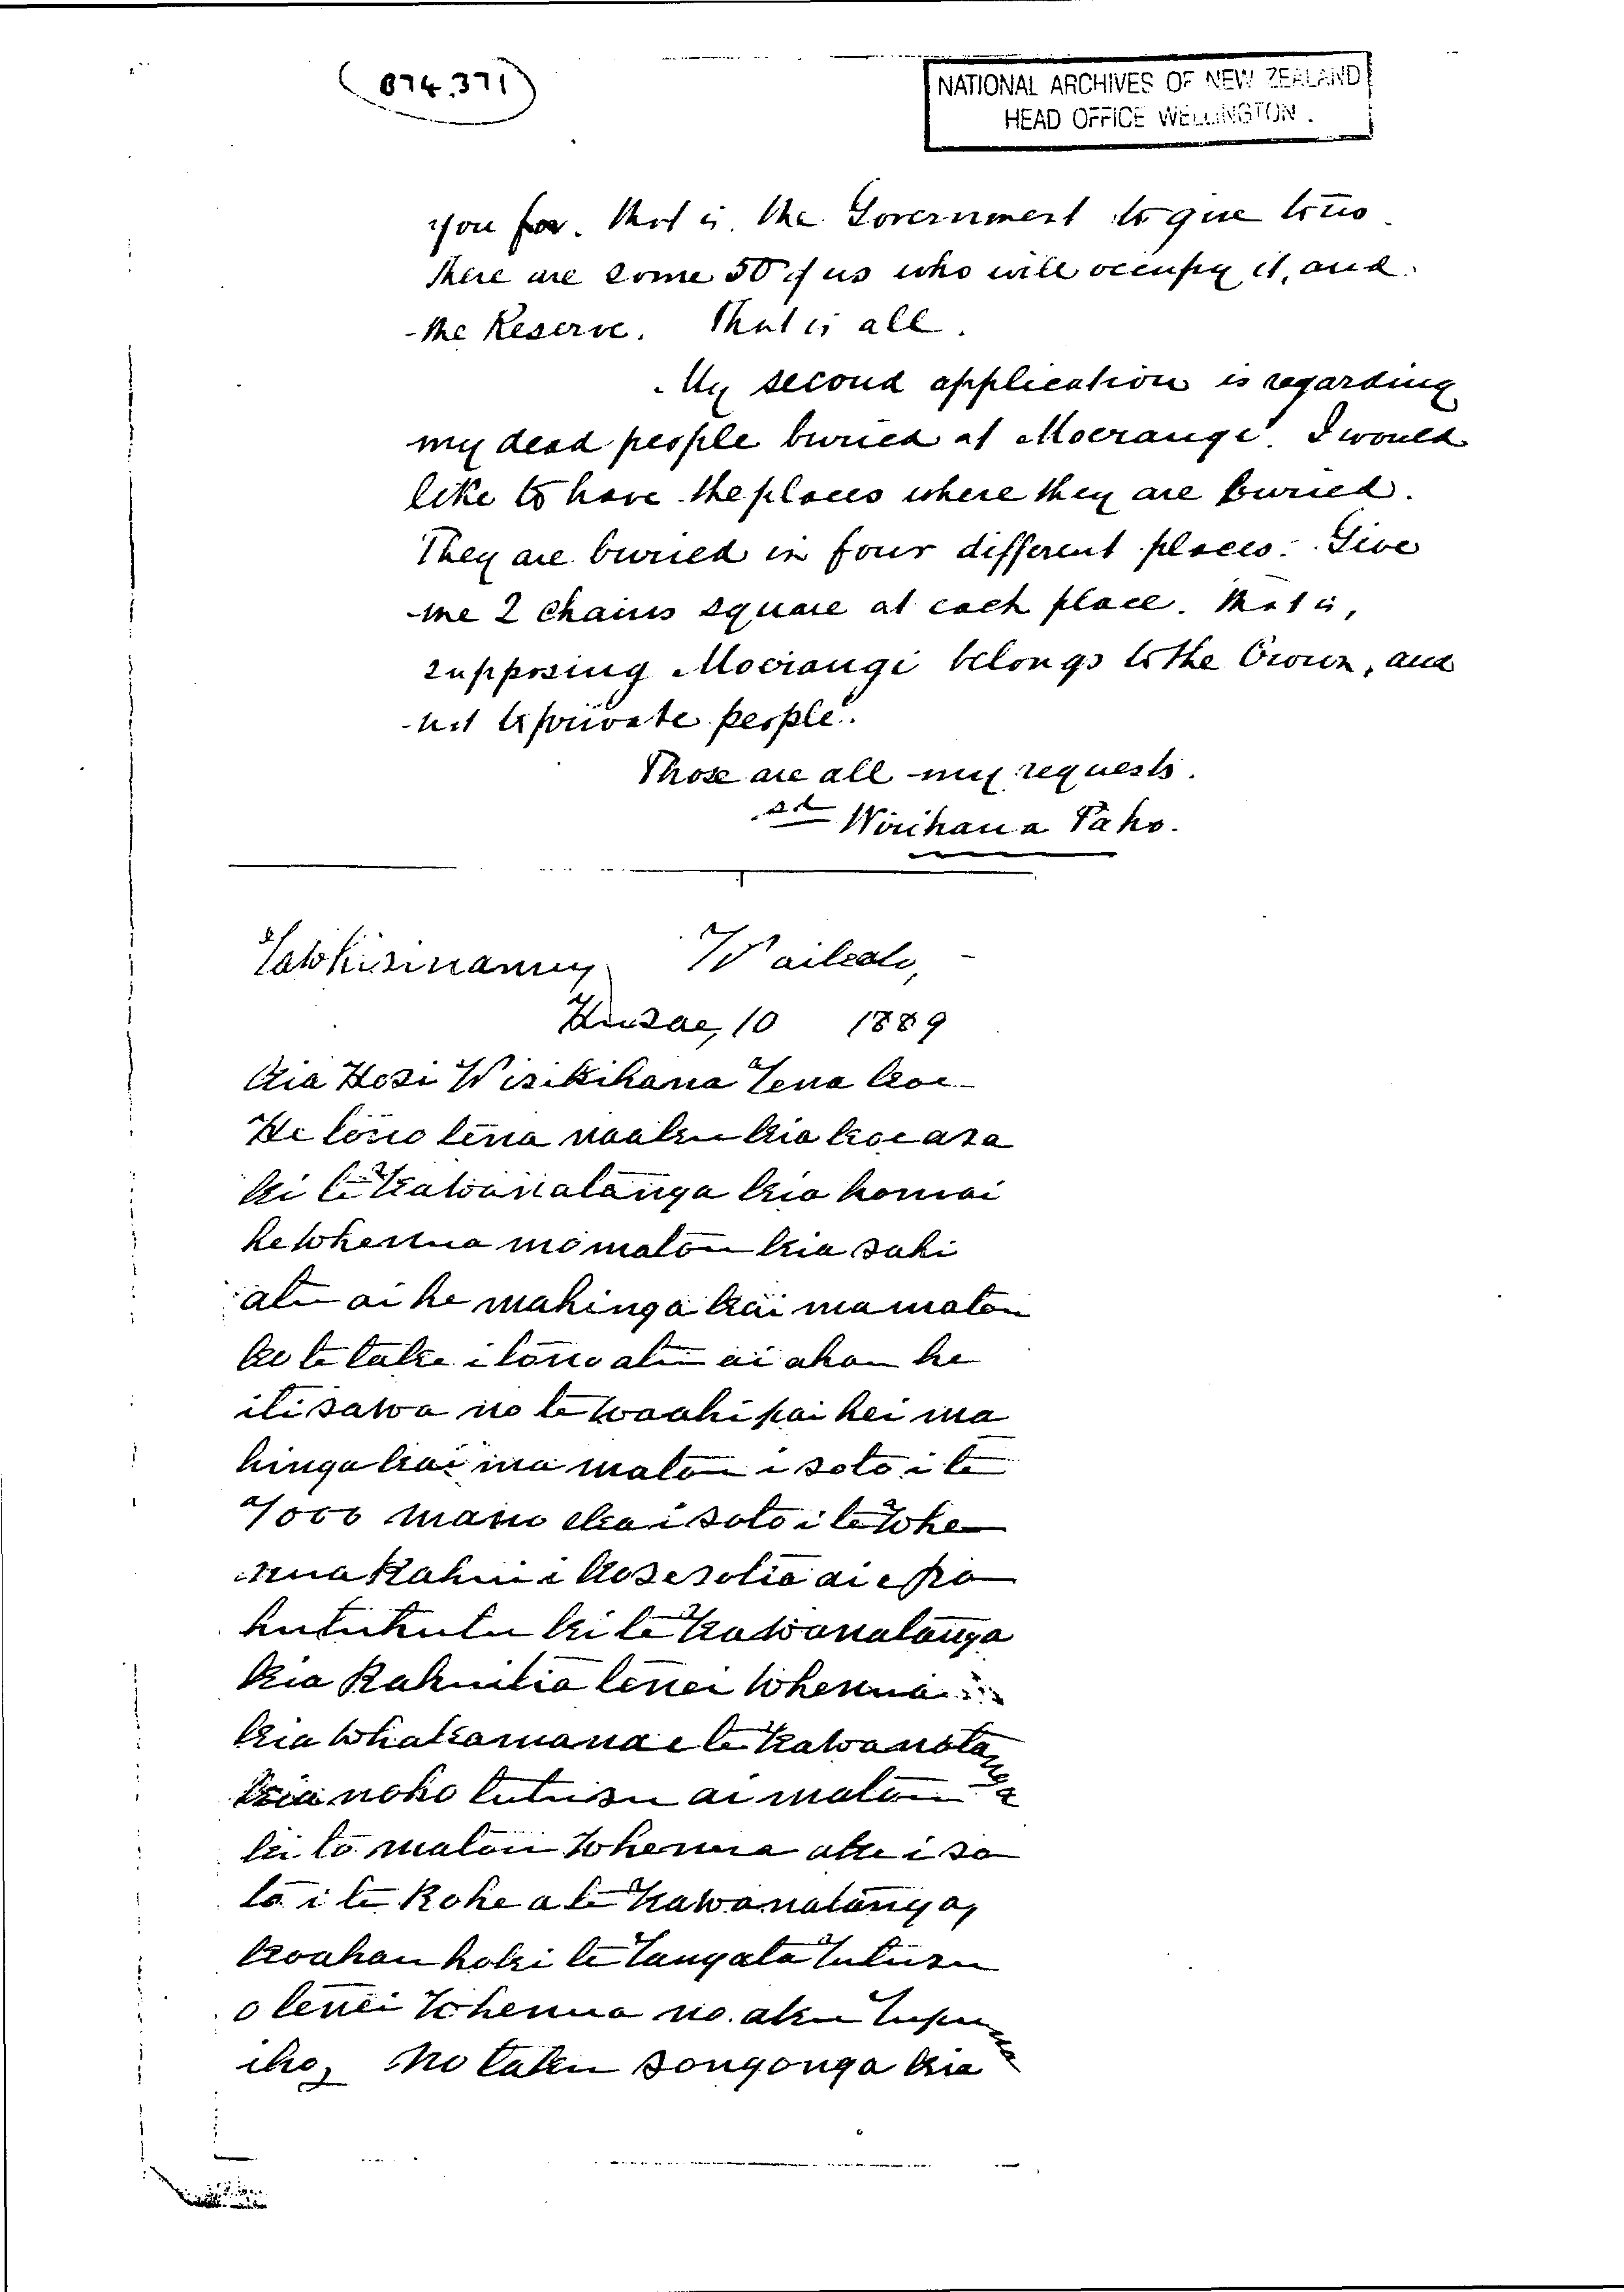 874.371
NATIONAL ARCHIVES OF NEW ZEALAND
HEAD OFFICE WELLINGTON.
you for. that is the Government to give to us
there are some 50 of us who will occupy it, and
the Reserve. That is all.
My second application is regarding
my dead people buried at Moerangi. I would
like to have the places where they are buried.
They are buried in four different places. Give
me 2 chains square at each place. That is,
supposing Moerangi belongs to the Crown, and
not to private people.
Those are all my requests.
sd Wirihana Paho.
Waikato,
Hurae, 10 1889
Kia Hori Wirikihana Tena koe
He tono tena naaku kia koe ara
ki te Kawanatanga kia homai
he whenua mo matou kia rahi
atu ai he mahinga kai ma matou
ko te take i tono atu ai ahau he
iti rawa no te waahi pai hei ma
hinga kai ma matou i roto i te
7000 mano eka i roto i te whe
nua Rahui i kororotia ai e
hutuhutu ki te Kawanatanga
kia Rahuitia tenei whenua
kia whakamana e te Kawanatanga
kia noho tuturu ai matou
ki to matou whenua ake i ro
to i te Rohe a te Kawanatanga,
ko ahau hoki te Tangata Tuturu
o tenei whenua no aku Tupuna
iho, No taku rongonga kia